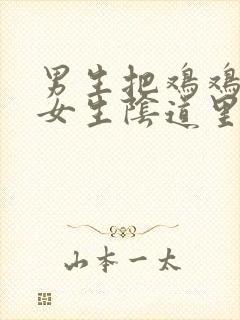 男生把鸡鸡
女生陰道里
山本一太